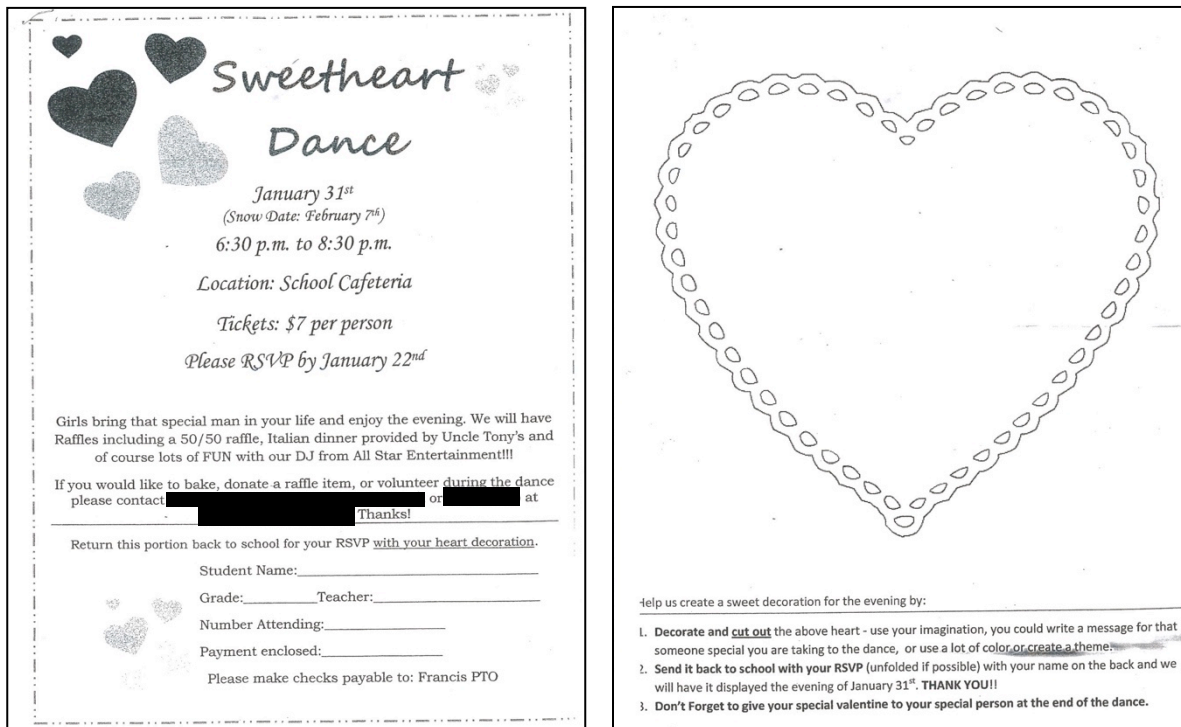 Sweetheart
Dance
January 31st
(Snow Date: February 7th)
6:30 p.m. to 8:30 p.m.
Location: School Cafeteria
Tickets: $7 per person
Please RSVP by January 22nd
Girls bring that special man in your life and enjoy the evening. We will have
Raffles including a 50/50 raffle, Italian dinner provided by Uncle Tony's and
of course lots of FUN with our DJ from All Star Entertainment!!!
If you would like to bake, donate a raffle item, or volunteer during the dance
please contact or at
Thanks!
Return this portion back to school for your RSVP with your heart decoration.
Student Name:
Grade: Teacher:
Number Attending:
Payment enclosed:
Please make checks payable to: Francis PTO
Help us create a sweet decoration for the evening by:
1. Decorate and cut out the above heart - use your imagination, you could write a message for that
someone special you are taking to the dance, or use a lot of color or create a theme.
2. Send it back to school with your RSVP (unfolded if possible) with your name on the back and we
will have it displayed the evening of January 31st. THANK YOU!!
3. Don't Forget to give your special valentine to your special person at the end of the dance.